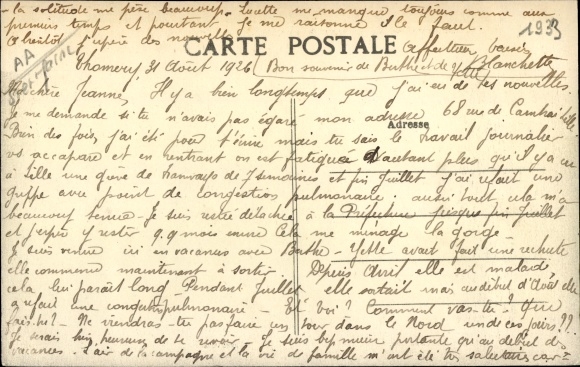 la solitude me pèse beaucoup. Lucette me manque toujours comme aux
premiers temps et pourtant je me raisonne il le faut.
A bientôt j'espère des nouvelles
Affectueux baisers
Blanchette
1933
CARTE POSTALE
Thomery, 31 Août 1926 (Bon souvenir de Berthe et de Yette)
Ma chère Jeanne, Il y a bien longtemps que j'ai eu de tes nouvelles.
Je me demande si tu n'avais pas égaré mon adresse 68 rue de Cambrai Lille
Adresse
Bien des fois j'ai été pour t'écrire mais tu sais le travail journalier
vs accapare et en rentrant on est fatiguée d'autant plus qu'il y a eu
à Lille une grève de tramways de 7 semaines et fin Juillet j'ai refait une
grippe avec point de congestion pulmonaire aussi tout cela m'a
beaucoup tenue. Je suis restée détachée à la Préfecture jusque fin Juillet
et j'espère y rester q.q mois encore Cela me ménage la gorge.
Je suis venue ici en vacances avec Berthe. Yette avait fait une rechute
elle commence maintenant à sortir. Depuis Avril elle est malade,
cela lui paraît long. Pendant Juillet elle sortait mais au début d'Août elle
a refait une congest. pulmonaire. Et toi? Comment vas-tu? Que
fais-tu? Ne viendras-tu pas faire un tour dans le Nord un de ces jours??
Je serais bien heureuse de te revoir. Je suis bep mieux portante qu'au début des
vacances. L'air de la campagne et la vie de famille m'ont été très salutaires car